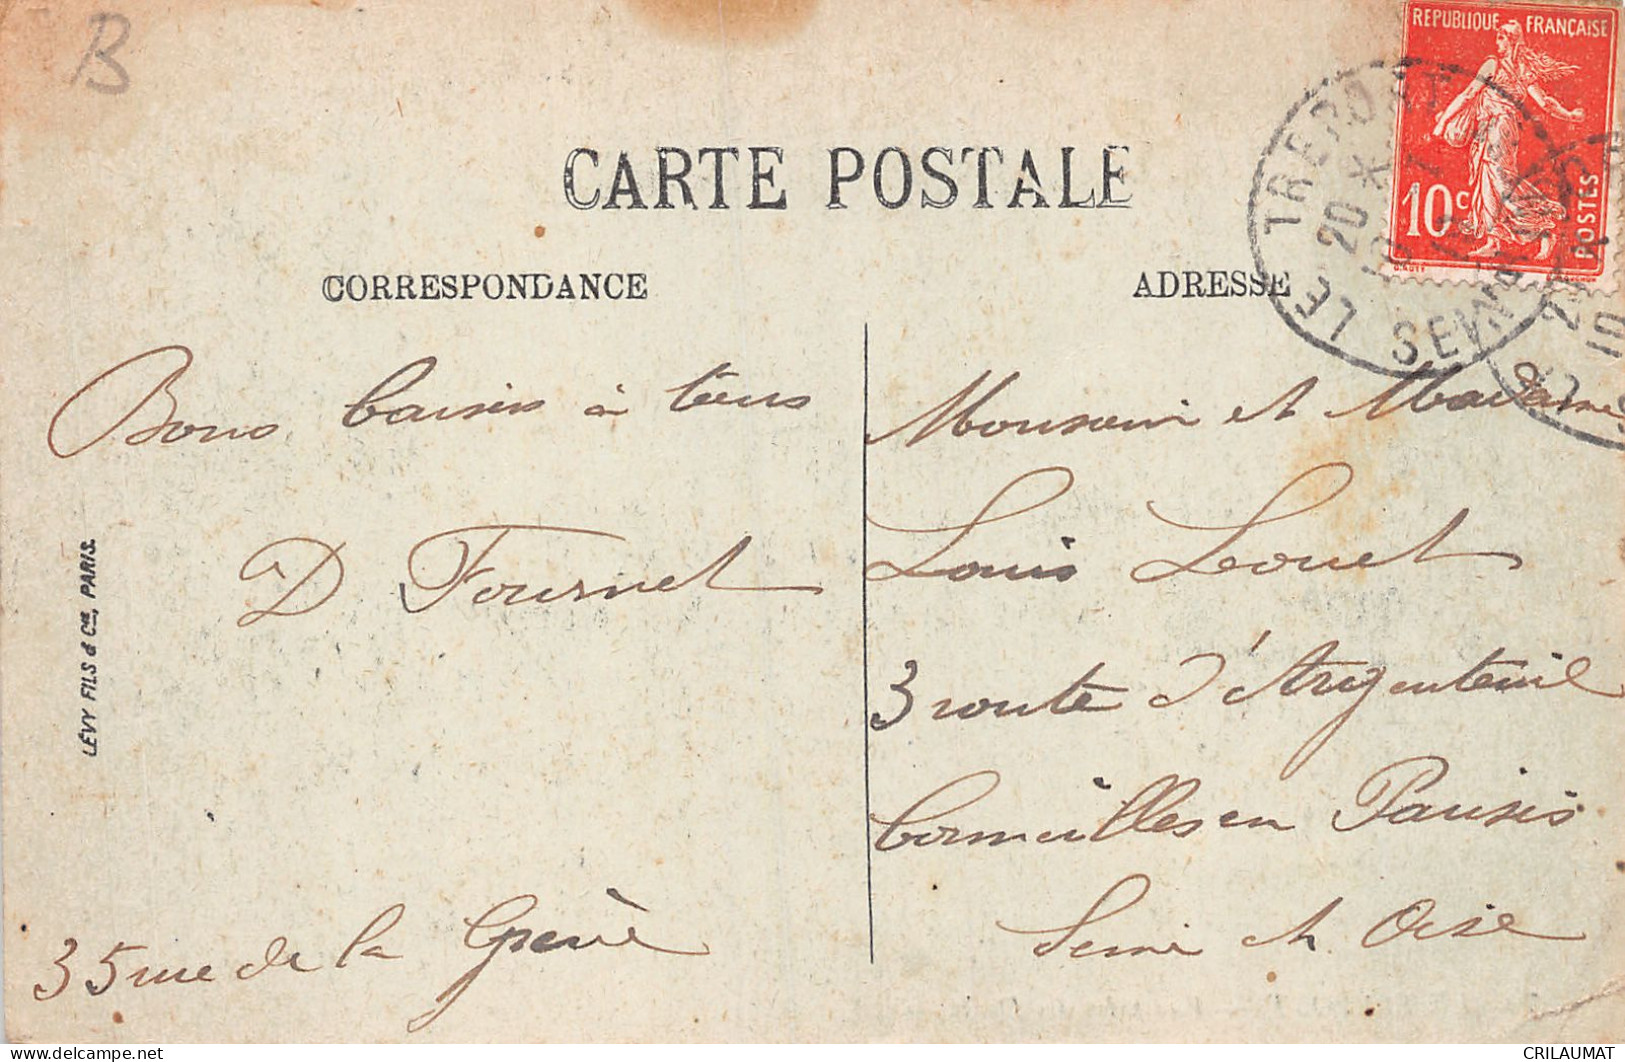 B
CARTE POSTALE
CORRESPONDANCE
ADRESSE
REPUBLIQUE FRANÇAISE
10c
POSTES
LE TREPORT
20 *
SEINE
Bons baisers à tous
D Fournet
35 rue de la Grève
LÉVY FILS & Cie, PARIS.
Monsieur et Madame
Louis Leouet
3 route d'Argenteuil
Cormeilles en Parisis
Seine et Oise
CRILAUMAT